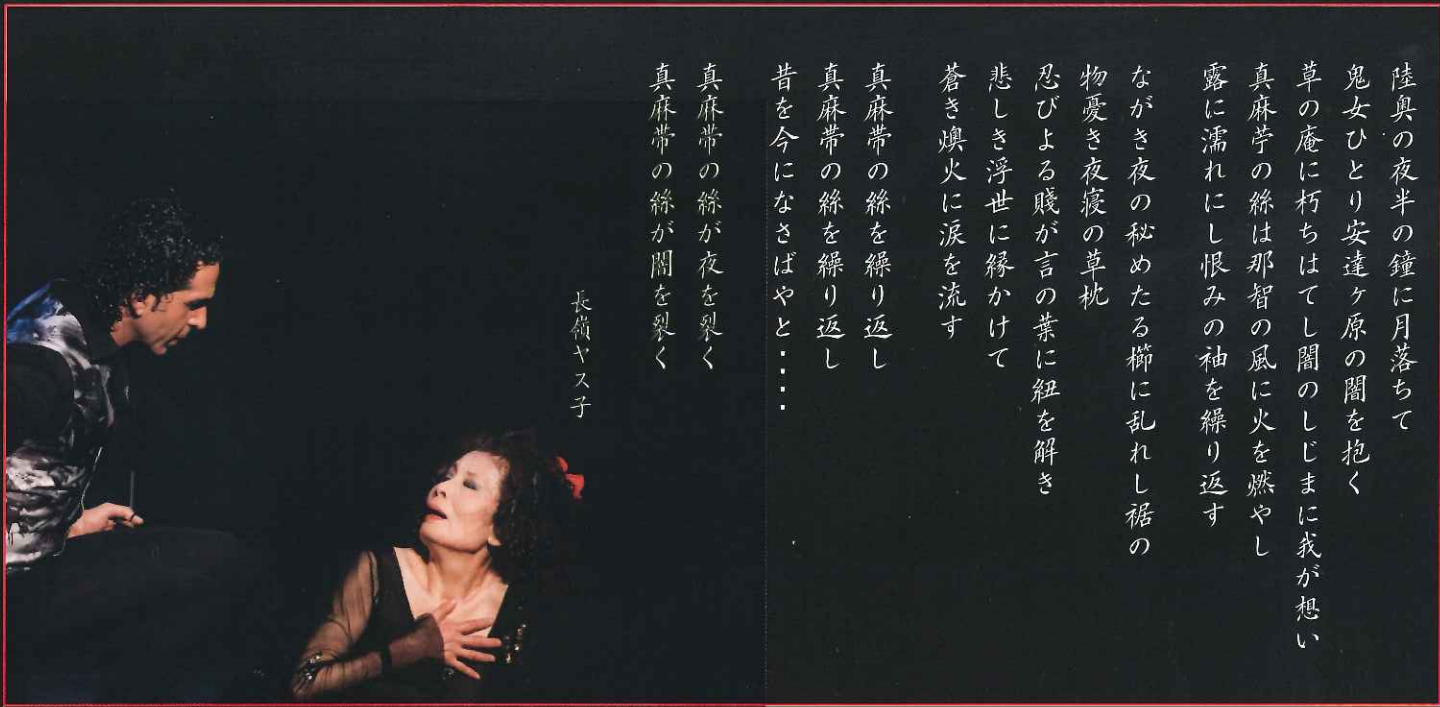 陸奥の夜半の鐘に月落ちて
鬼女ひとり安達ヶ原の闇を抱く
草の庵に朽ちはてし闇のしじまに我が想い
真麻苧の絲は那智の風に火を燃やし
露に濡れにし恨みの袖を繰り返す
ながき夜の秘めたる櫛に乱れし裾の
物憂き夜寝の草枕
忍びよる賤が言の葉に紐を解き
悲しき浮世に縁かけて
蒼き燠火に涙を流す
真麻帯の絲を繰り返し
真麻帯の絲を繰り返し
昔を今になさばやと・・・・
真麻帯の絲が夜を裂く
真麻帯の絲が闇を裂く
長嶺ヤス子